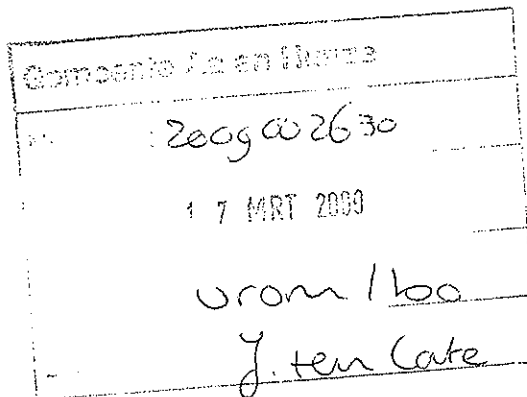 Gemeente Aa en Hunze
: 2009002630
17 MRT 2009
vrom / boo
J. ten Cate